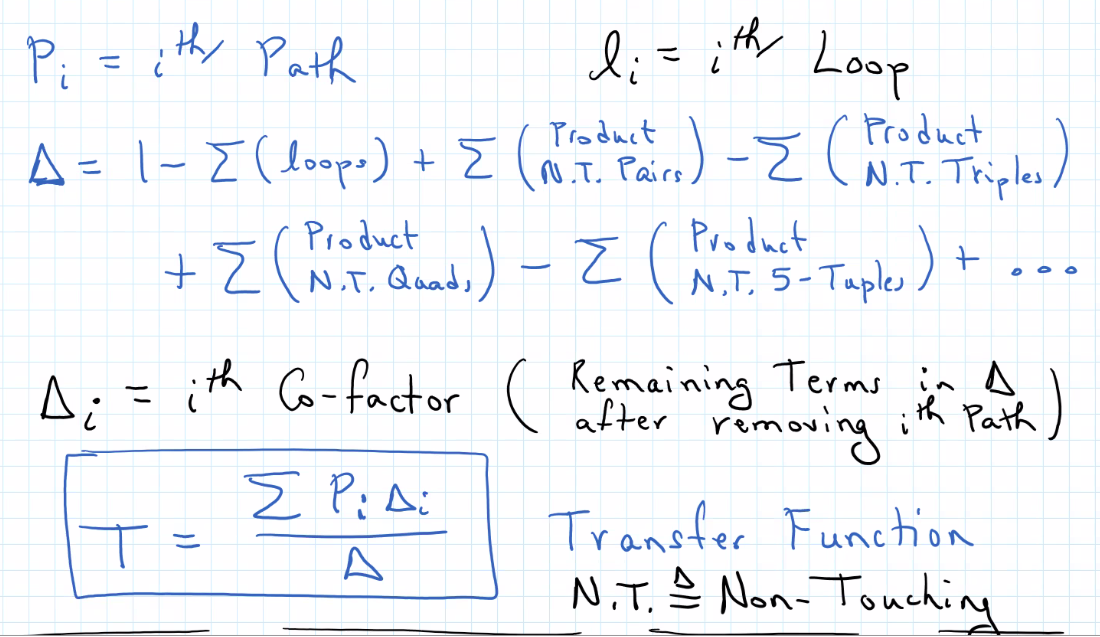 P_i = i^th Path    l_i = i^th Loop
Δ = 1 - Σ(loops) + Σ(Product N.T. Pairs) - Σ(Product N.T. Triples)
+ Σ(Product N.T. Quads) - Σ(Product N.T. 5-Tuples) + ...
Δ_i = i^th Co-factor (Remaining Terms in Δ after removing i^th Path)
T = Σ P_i Δ_i / Δ    Transfer Function
N.T. ≜ Non-Touching